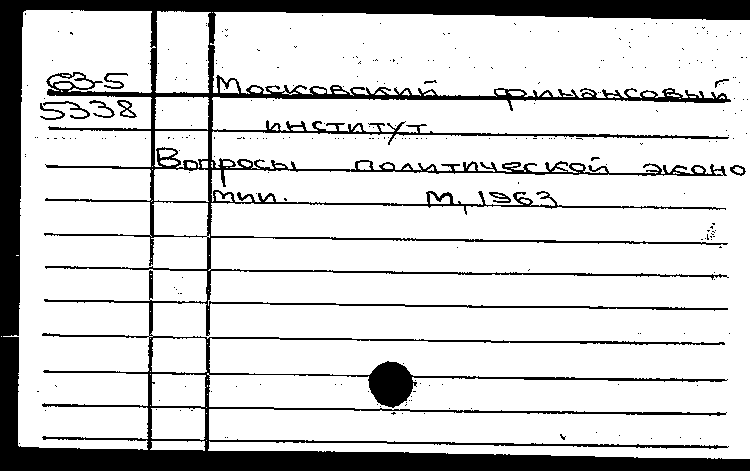 63-5 Московский финансовый
5338
институт.
Вопросы политической эконо
мии. М, 1963